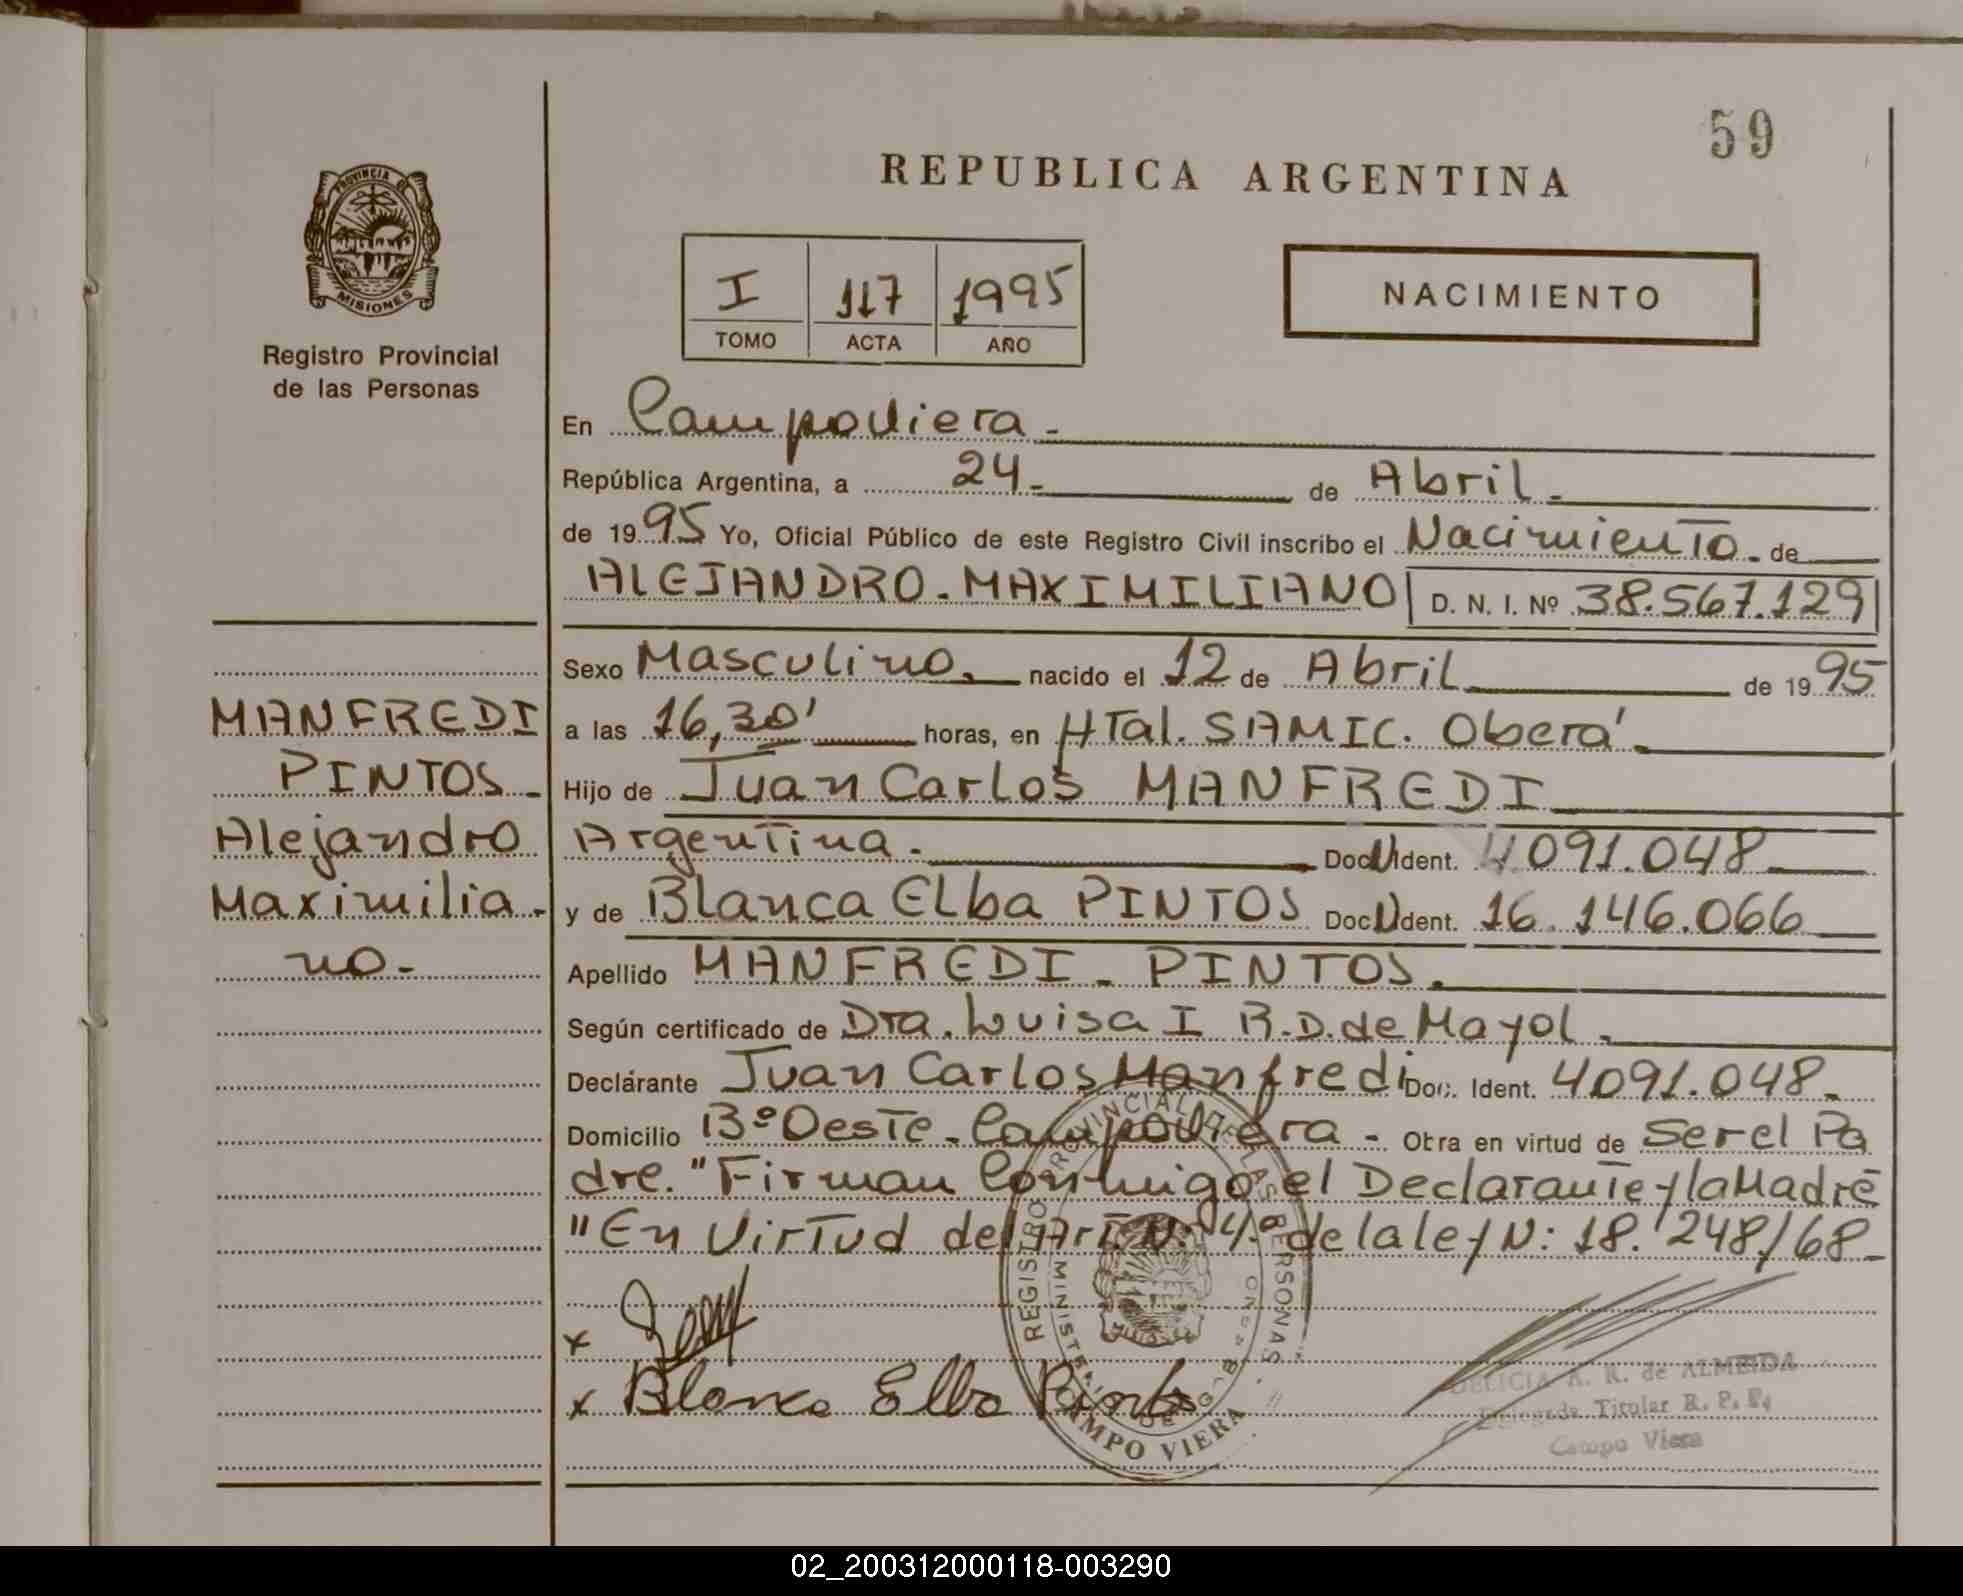 59
REPUBLICA ARGENTINA
PROVINCIA DE
MISIONES
Registro Provincial
de las Personas
I 117 1995
TOMO ACTA AÑO
NACIMIENTO
En Campoviera.
República Argentina, a 24 de Abril.
de 1995 Yo, Oficial Público de este Registro Civil inscribo el Nacimiento. de
ALEJANDRO. MAXIMILIANO D. N. I. Nº 38.567.129
Sexo Masculino. nacido el 12 de Abril de 1995
a las 16,30' horas, en HTal. SAMIC. Oberá.
Hijo de Juan Carlos MANFREDI
Argentina. Doc. Ident. 4091.048
y de Blanca Elba PINTOS Doc. Ident. 16.146.066
Apellido MANFREDI - PINTOS.
Según certificado de Dra. Luisa I R.D. de Mayol.
Declárante Juan Carlos Manfredi Doc. Ident. 4091.048.
Domicilio Bº Oeste. Campoviera - Otra en virtud de Ser el Pa
dre. "Firman Conmigo el Declarante y la Madre
"En Virtud del Art. N: 4. de la ley N: 18.248/68
MANFREDI
PINTOS.
Alejandro
Maximilia-
no-
x
x Blanca Elba Pintos
REGISTRO PROVINCIAL DE LAS PERSONAS
MINISTERIO DE GOB.
CAMPO VIERA
DELICIA A. R. de ALMEIDA
Delegada Titular R. P. P.
Campo Viera
02_200312000118-003290